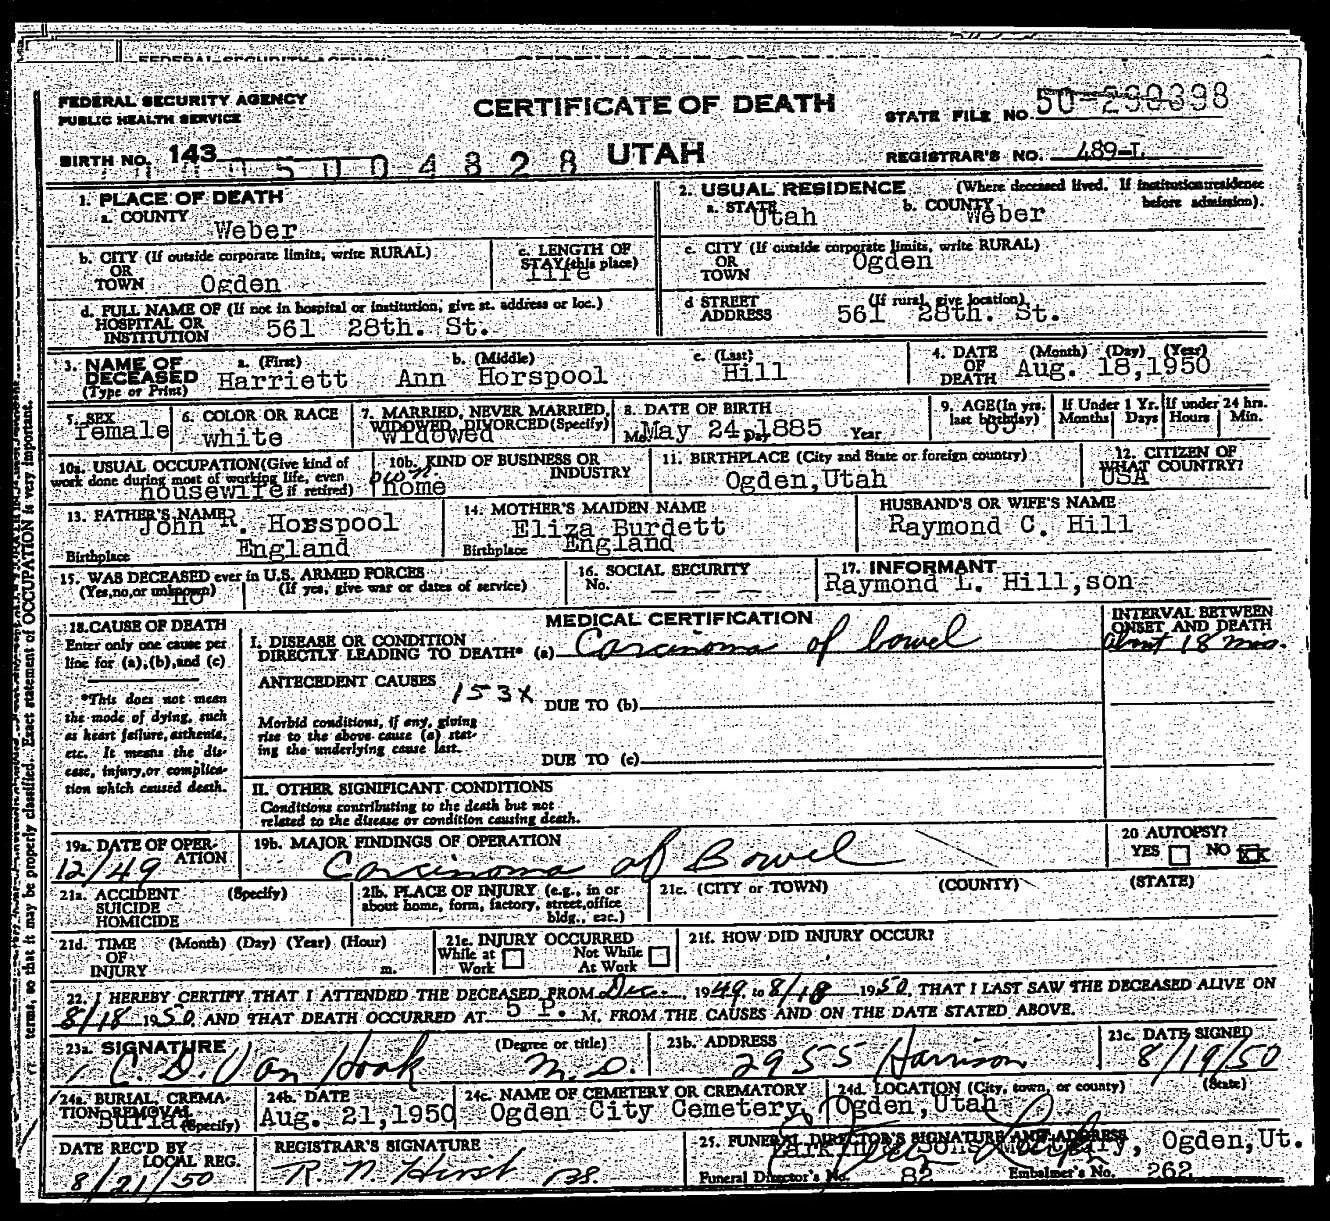 FEDERAL SECURITY AGENCY
PUBLIC HEALTH SERVICE
CERTIFICATE OF DEATH
STATE FILE NO. 50-290398
BIRTH NO. 143
5004828
UTAH
REGISTRAR'S NO. 489-L
1. PLACE OF DEATH
a. COUNTY
Weber
2. USUAL RESIDENCE (Where deceased lived. If institution:residence before admission).
a. STATE Utah b. COUNTY Weber
b. CITY (If outside corporate limits, write RURAL)
OR
TOWN Ogden
c. LENGTH OF
STAY(this place)
life
c. CITY (If outside corporate limits, write RURAL)
OR
TOWN
Ogden
d. FULL NAME OF (If not in hospital or institution, give st. address or loc.)
HOSPITAL OR
INSTITUTION 561 28th. St.
d STREET (If rural, give location)
ADDRESS 561 28th. St.
3. NAME OF
DECEASED
(Type or Print)
a. (First) b. (Middle) c. (Last)
Harriett Ann Horspool Hill
4. DATE (Month) (Day) (Year)
OF
DEATH Aug. 18,1950
5. SEX
female
6. COLOR OR RACE
white
7. MARRIED, NEVER MARRIED,
WIDOWED, DIVORCED(Specify)
widowed
8. DATE OF BIRTH
Mo. May 24, Day 1885 Year
9. AGE(In yrs.
last birthday)
65
If Under 1 Yr.
Months Days
If under 24 hrs.
Hours Min.
10a. USUAL OCCUPATION(Give kind of
work done during most of working life, even
if retired)
housewife
10b. KIND OF BUSINESS OR
INDUSTRY
own
home
11. BIRTHPLACE (City and State or foreign country)
Ogden,Utah
12. CITIZEN OF
WHAT COUNTRY?
USA
13. FATHER'S NAME
John R. Horspool
Birthplace England
14. MOTHER'S MAIDEN NAME
Eliza Burdett
Birthplace England
HUSBAND'S OR WIFE'S NAME
Raymond C. Hill
15. WAS DECEASED ever in U.S. ARMED FORCES
(Yes,no,or unknown) (If yes, give war or dates of service)
no
16. SOCIAL SECURITY
No. — — —
17. INFORMANT
Raymond L. Hill,son
18. CAUSE OF DEATH
Enter only one cause per
line for (a),(b),and (c)
*This does not mean
the mode of dying, such
as heart failure,asthenia,
etc. It means the dis-
ease, injury,or complica-
tion which caused death.
MEDICAL CERTIFICATION
INTERVAL BETWEEN
ONSET AND DEATH
I. DISEASE OR CONDITION
DIRECTLY LEADING TO DEATH* (a) Carcinoma of bowel
about 18 mos.
ANTECEDENT CAUSES
153X
DUE TO (b)
Morbid conditions, if any, giving
rise to the above cause (a) stat-
ing the underlying cause last.
DUE TO (c)
II. OTHER SIGNIFICANT CONDITIONS
Conditions contributing to the death but not
related to the disease or condition causing death.
19a. DATE OF OPER-
ATION
12/49
19b. MAJOR FINDINGS OF OPERATION
Carcinoma of Bowel
20 AUTOPSY?
YES NO XX
21a. ACCIDENT (Specify)
SUICIDE
HOMICIDE
21b. PLACE OF INJURY (e.g., in or
about home, form, factory, street,office
bldg., esc.)
21c. (CITY or TOWN) (COUNTY) (STATE)
21d. TIME (Month) (Day) (Year) (Hour)
OF
INJURY m.
21e. INJURY OCCURRED
While at Not While
Work At Work
21f. HOW DID INJURY OCCUR?
22. I HEREBY CERTIFY THAT I ATTENDED THE DECEASED FROM Dec. , 1949 to 8/18 1950, THAT I LAST SAW THE DECEASED ALIVE ON
8/18 1950, AND THAT DEATH OCCURRED AT 5 P. M. FROM THE CAUSES AND ON THE DATE STATED ABOVE.
23a. SIGNATURE (Degree or title)
C. D. Van Hook M.D.
23b. ADDRESS
2955 Harrison
23c. DATE SIGNED
8/19/50
24a. BURIAL, CREMA-
TION REMOVAL
(Specify)
Burial
24b. DATE
Aug. 21,1950
24c. NAME OF CEMETERY OR CREMATORY
Ogden City Cemetery,
24d. LOCATION (City, town, or county) (State)
Ogden,Utah
DATE REC'D BY
LOCAL REG.
8/21/50
REGISTRAR'S SIGNATURE
R. N. Hirst
25. FUNERAL DIRECTOR'S SIGNATURE AND ADDRESS
Ogden,Ut.
Funeral Director's No. 82 Embalmer's No. 262
terms, so that it may be properly classified. Exact statement of OCCUPATION is very important.